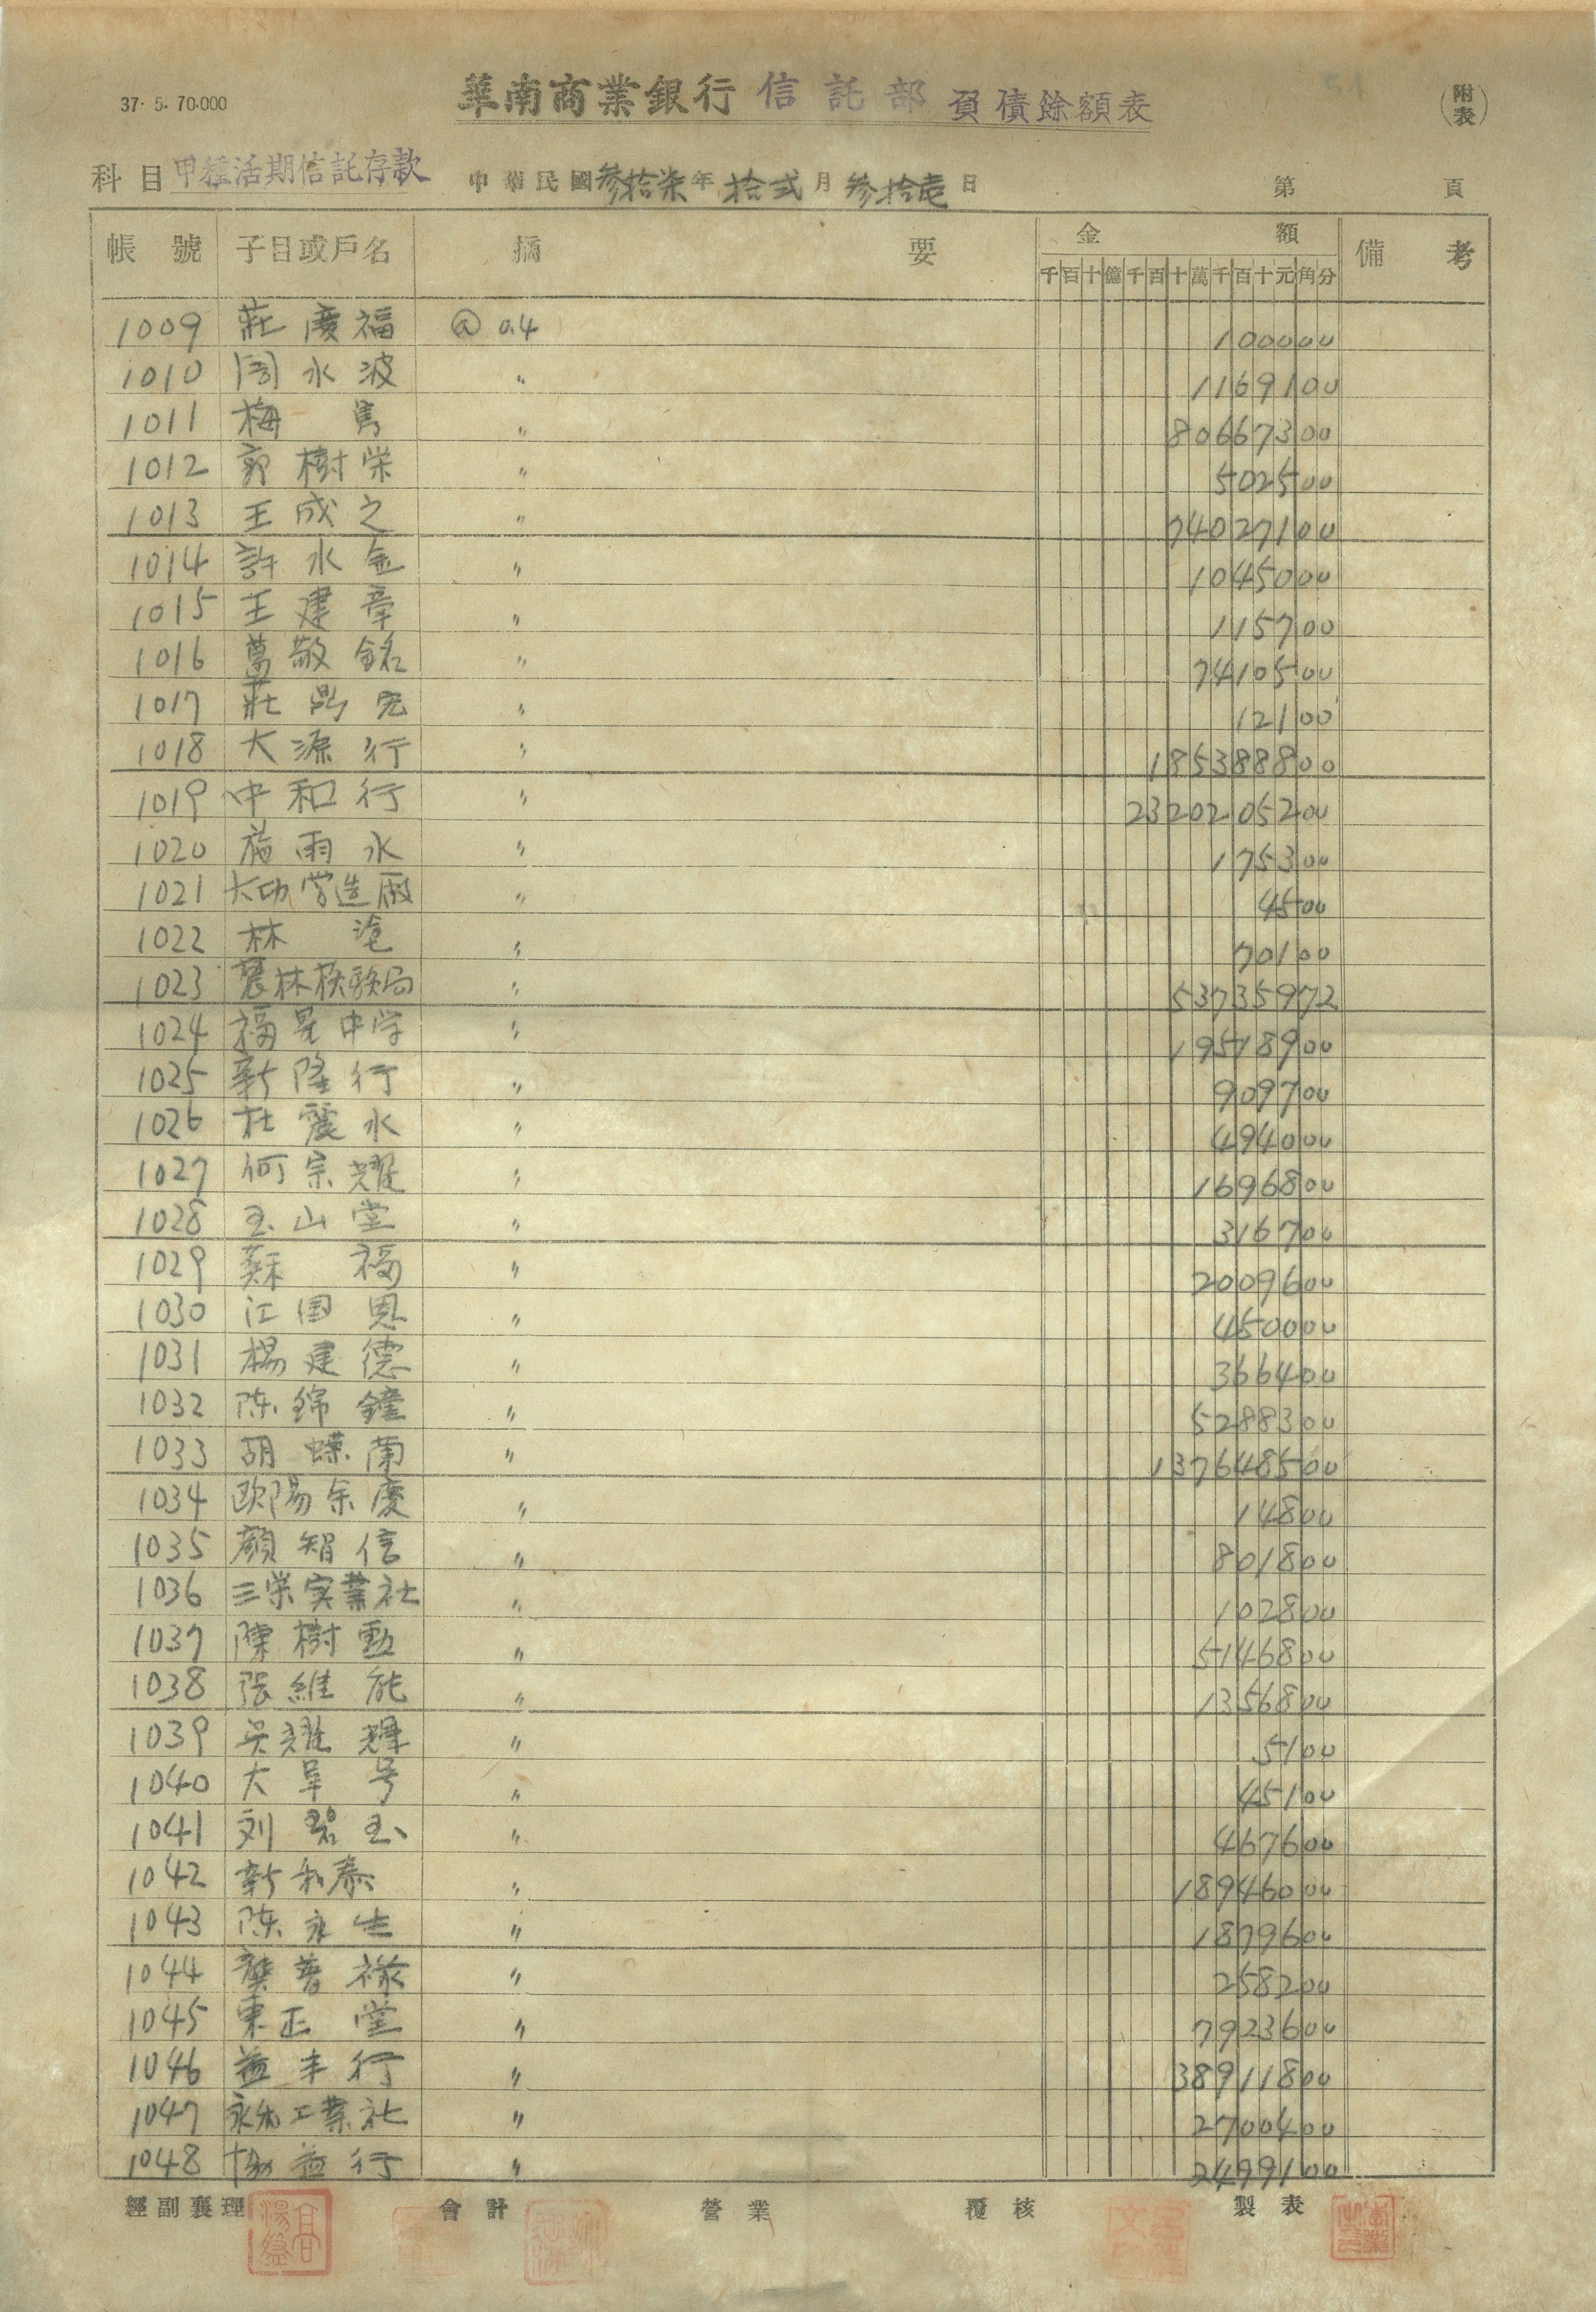 37. 5. 70.000
華南商業銀行 信託部 負債餘額表
(附表)
51
科目 甲種活期信託存款 中華民國叁拾柒年拾弍月叁拾壱日 第 頁
帳號 子目或戶名 摘要 金額 備考
千百十億千百十萬千百十元角分
1009 莊廣福 @ 0.4 100000
1010 周水波 〃 1169100
1011 梅 〃 80667300
1012 郭樹栄 〃 502500
1013 王成之 〃 74027100
1014 許水金 〃 1045000
1015 王建章 〃 115700
1016 萬敬銘 〃 7410500
1017 莊鼎宏 〃 12100
1018 大源行 〃 185388800
1019 中和行 〃 2320205200
1020 施雨水 〃 175300
1021 大功営造廠 〃 4500
1022 林塗 〃 70100
1023 農林檢験局 〃 53735972
1024 福星中学 〃 19518900
1025 新隆行 〃 909700
1026 杜麗水 〃 494000
1027 何宗耀 〃 1696800
1028 玉山堂 〃 316700
1029 蘇福 〃 2009600
1030 江国恩 〃 450000
1031 楊建德 〃 366400
1032 陈錦鐘 〃 5288300
1033 胡蝶蘭 〃 137648500
1034 欧陽余慶 〃 14800
1035 顏智信 〃 801800
1036 三栄実業社 〃 102800
1037 陳樹勳 〃 5146800
1038 張維能 〃 1356800
1039 吳耀輝 〃 5100
1040 大阜号 〃 45100
1041 刘碧玉 〃 467600
1042 新和泰 〃 18946000
1043 陈永生 〃 1879600
1044 龔普禄 〃 258200
1045 東正堂 〃 7923600
1046 益丰行 〃 38911800
1047 永和工業社 〃 2700400
1048 協益行 〃 2499100
經副襄理 會計 營業 覆核 製表